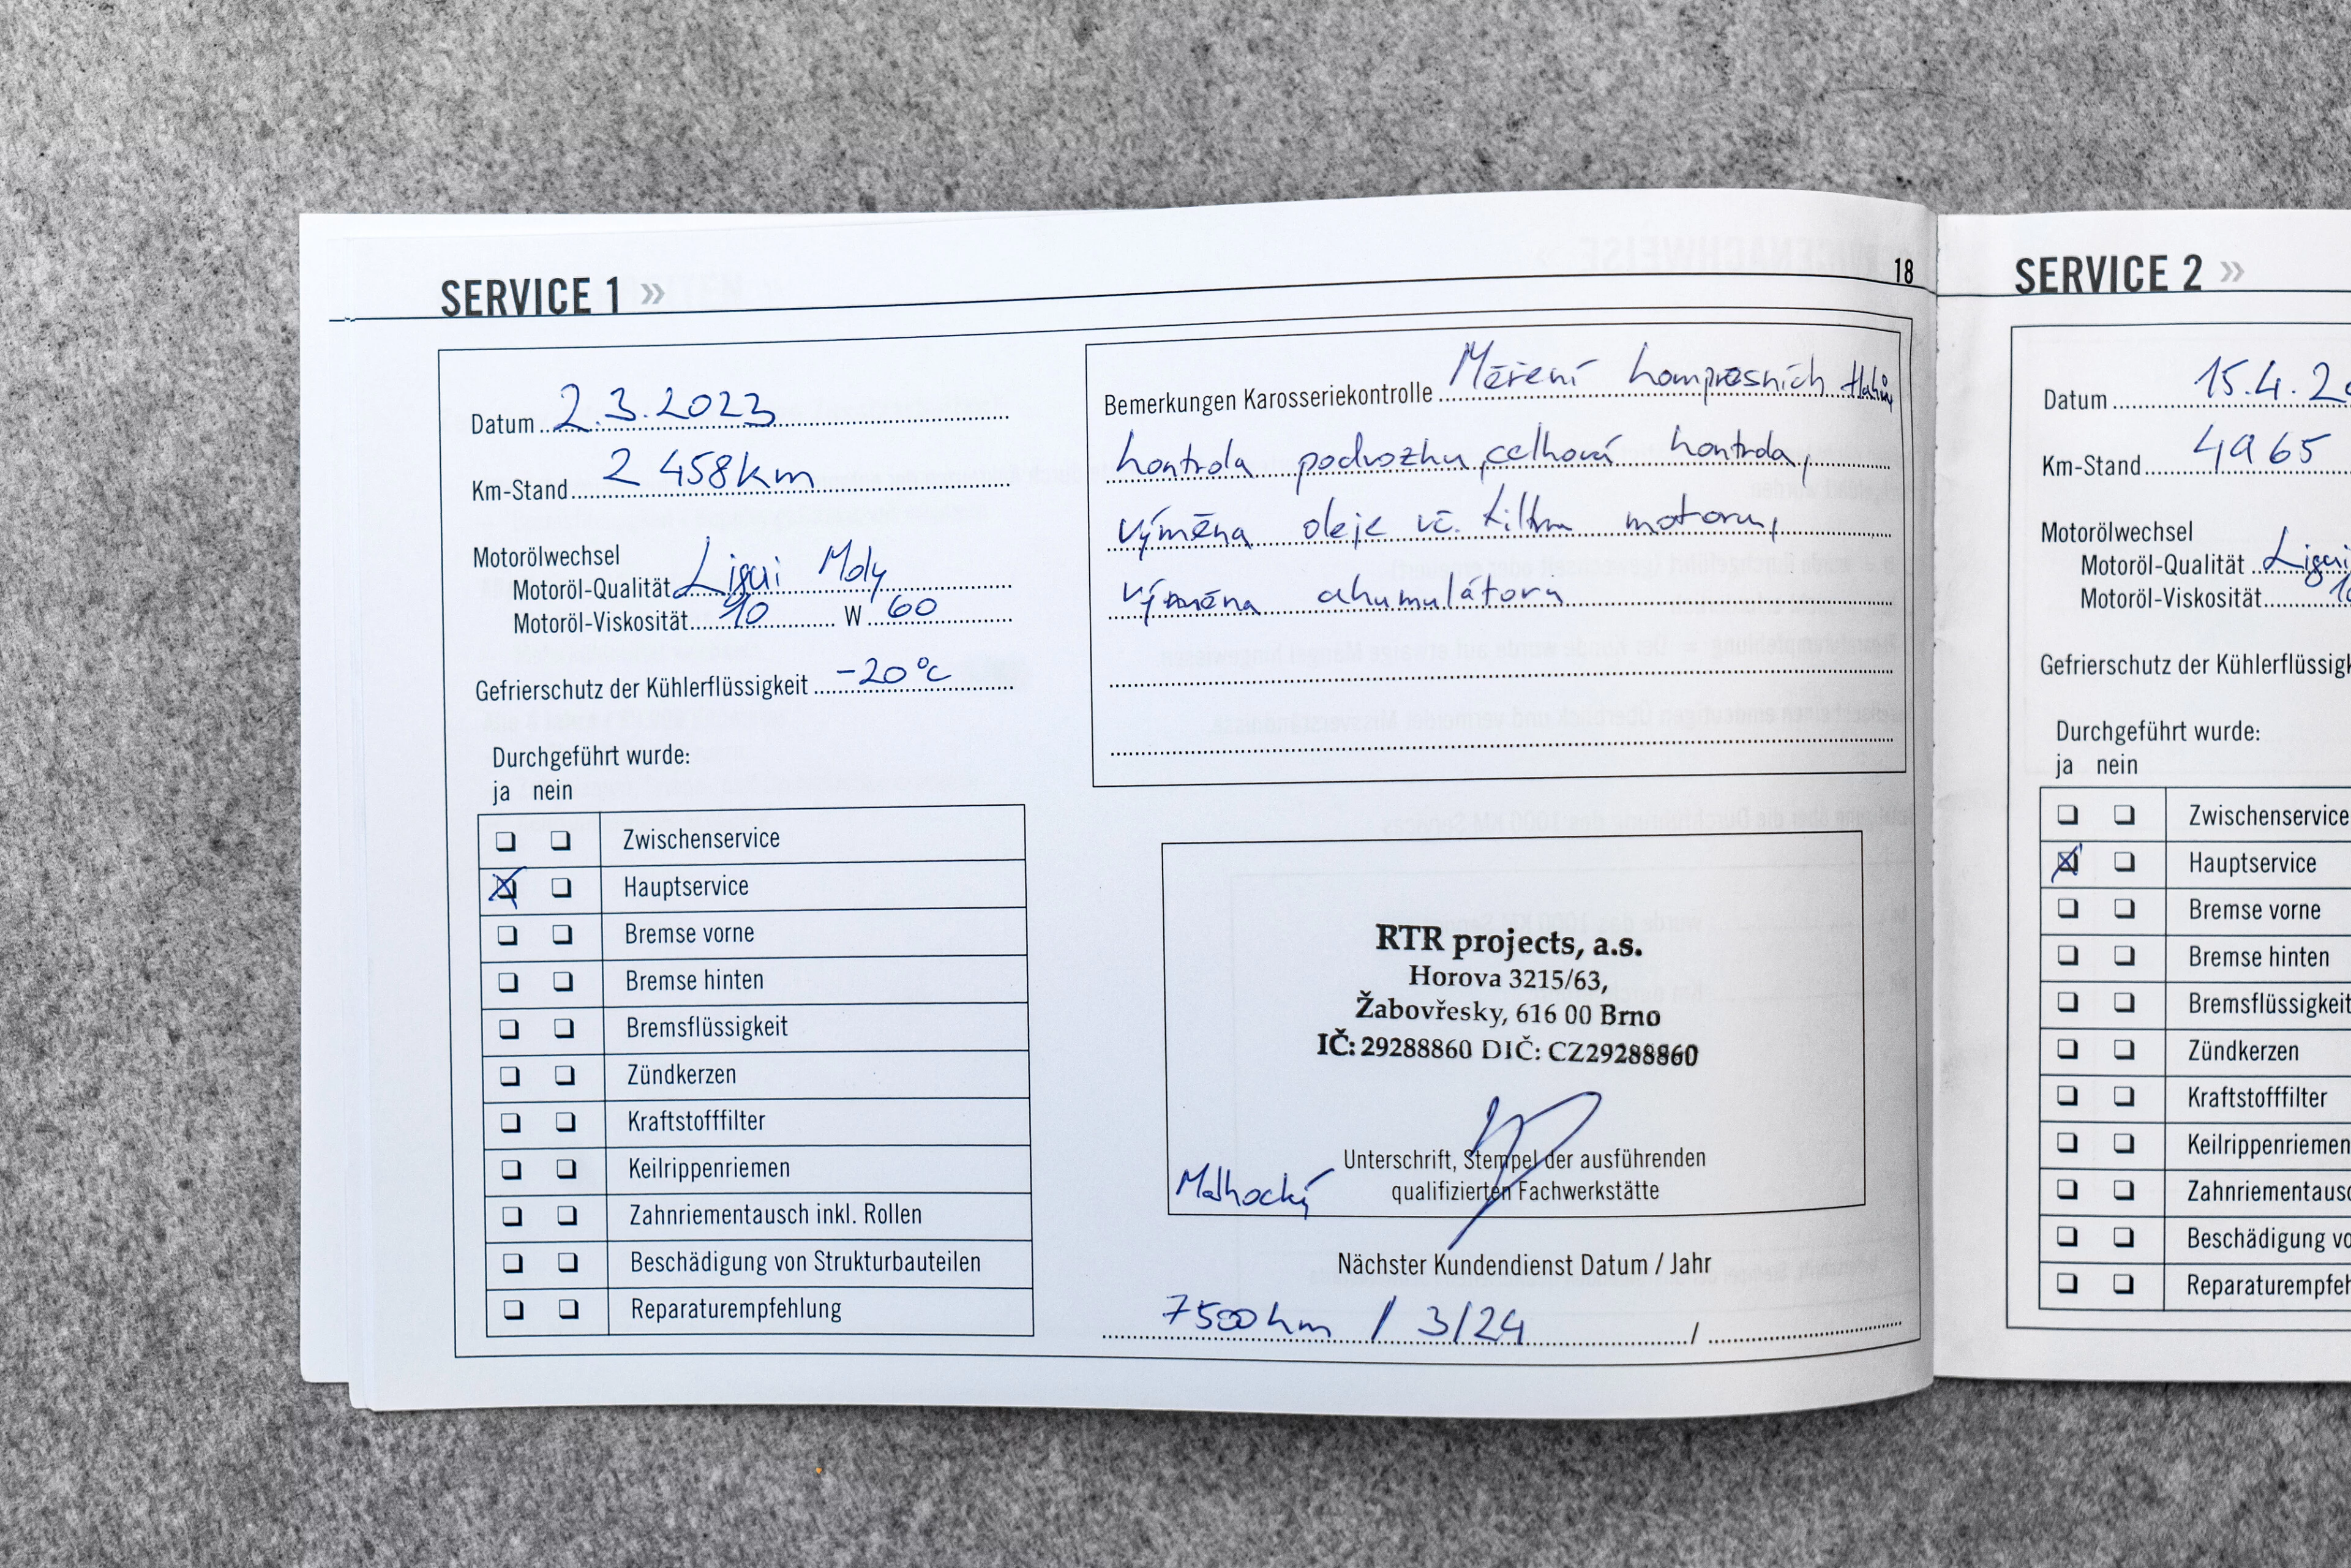 SERVICE 1 »
18
Datum 2.3.2023
Km-Stand 2 458km
Motorölwechsel
Motoröl-Qualität Liqui Moly
Motoröl-Viskosität 10 W 60
Gefrierschutz der Kühlerflüssigkeit -20°C
Durchgeführt wurde:
ja nein
Zwischenservice
Hauptservice
Bremse vorne
Bremse hinten
Bremsflüssigkeit
Zündkerzen
Kraftstofffilter
Keilrippenriemen
Zahnriementausch inkl. Rollen
Beschädigung von Strukturbauteilen
Reparaturempfehlung
Bemerkungen Karosseriekontrolle Měření kompresních tlaků,
kontrola podvozku, celková kontrola,
výměna oleje vč. filtru motoru,
výměna akumulátoru
RTR projects, a.s.
Horova 3215/63,
Žabovřesky, 616 00 Brno
IČ: 29288860 DIČ: CZ29288860
Unterschrift, Stempel der ausführenden
qualifizierten Fachwerkstätte
Nächster Kundendienst Datum / Jahr
7500km / 3/24 /
SERVICE 2 »
Datum 15.4.20
Km-Stand 4965
Motorölwechsel
Motoröl-Qualität Liqui
Motoröl-Viskosität 10
Gefrierschutz der Kühlerflüssigk
Durchgeführt wurde:
ja nein
Zwischenservice
Hauptservice
Bremse vorne
Bremse hinten
Bremsflüssigkeit
Zündkerzen
Kraftstofffilter
Keilrippenriemen
Zahnriementausc
Beschädigung vo
Reparaturempfeh